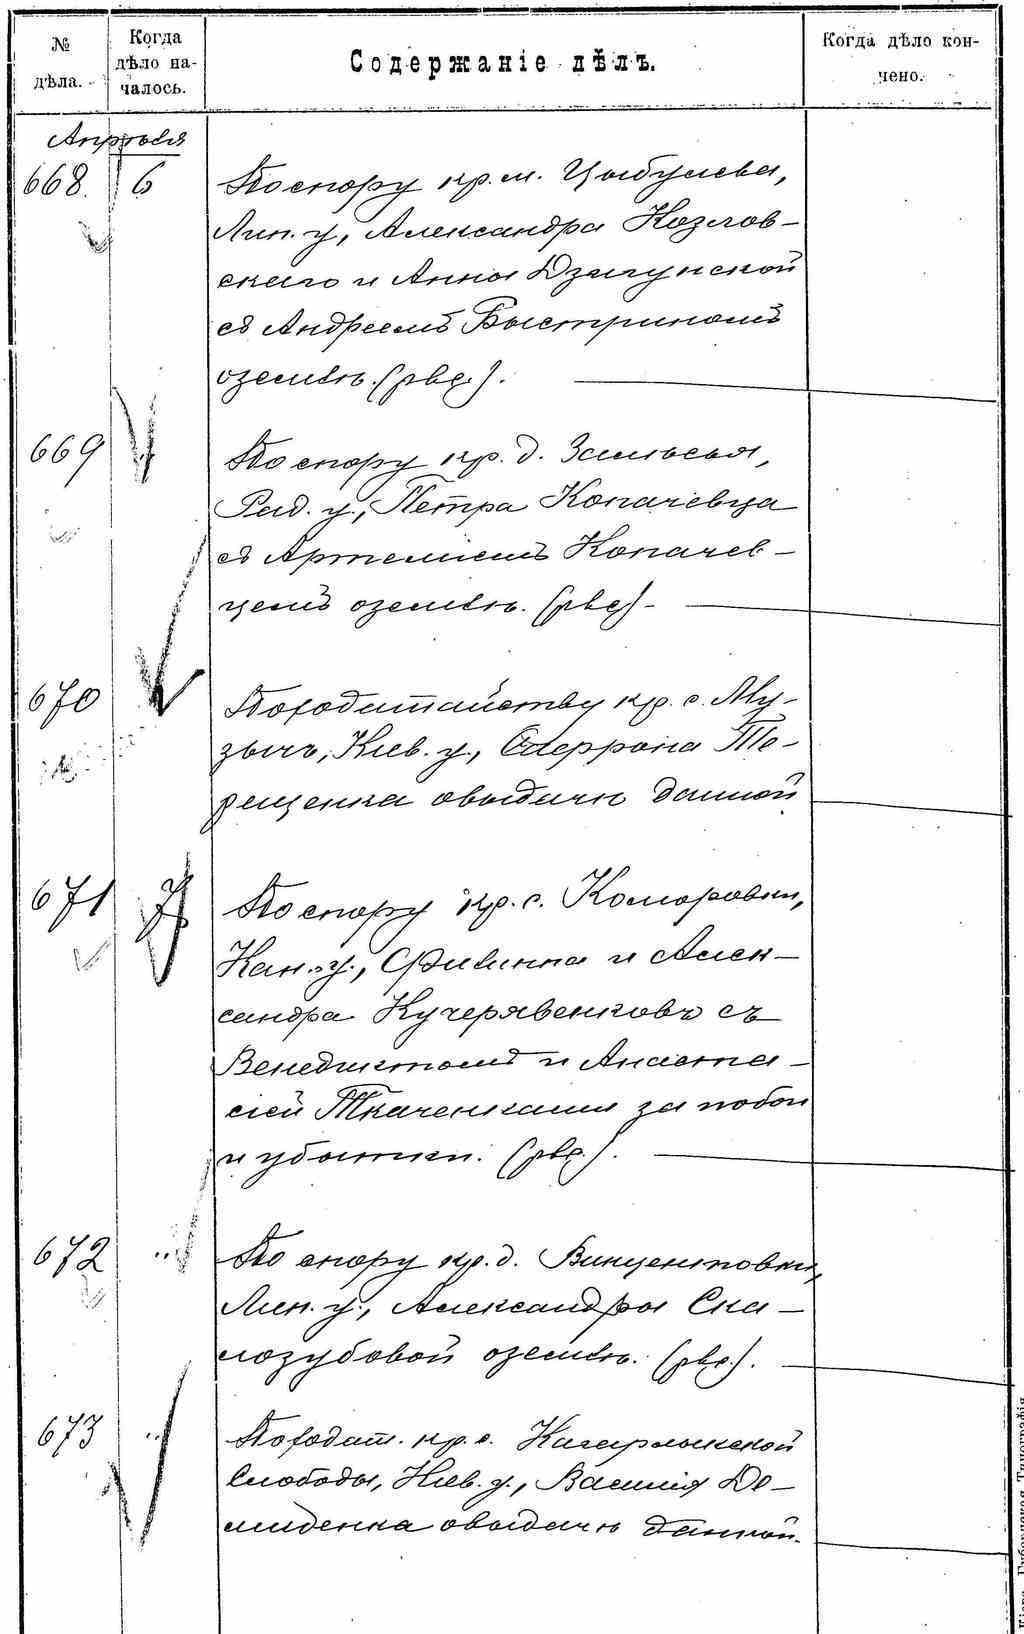 № дѣла.
Когда дѣло началось.
Содержаніе дѣлъ.
Когда дѣло кончено.
Апрѣля
668. 6 По спору кр. м. Цыбулева,
Лип. у., Александра Козлов-
скаго и Анны Дзыгунской
съ Андреемъ Быстринымъ
о землѣ. (рвд.).
669 По спору кр. д. Замосья,
Рад. у., Петра Копачевца
съ Артеміемъ Копачев-
цемъ о землѣ. (рвд)-
670 По ходатайству кр. с. Му-
зычъ, Кіев. у., Те-
рещенка о выдачѣ данной
671 7 По спору кр. с. Комаровки,
Кан. у., Филиппа и Алек-
сандра Кучерявенковъ съ
Венедиктомъ и Анаста-
сіей Ткаченками за побои
и убытки. (рвд.).
672 " По спору кр. д. Винцентовки,
Лип. у., Александры Ска-
лозубовой о землѣ. (рвд.).
673 " По ходат. кр. с. Кагарлыкской
Слободы, Кіев. у., Василія Де-
миденка о выдачѣ данной.
Губернская Типографія